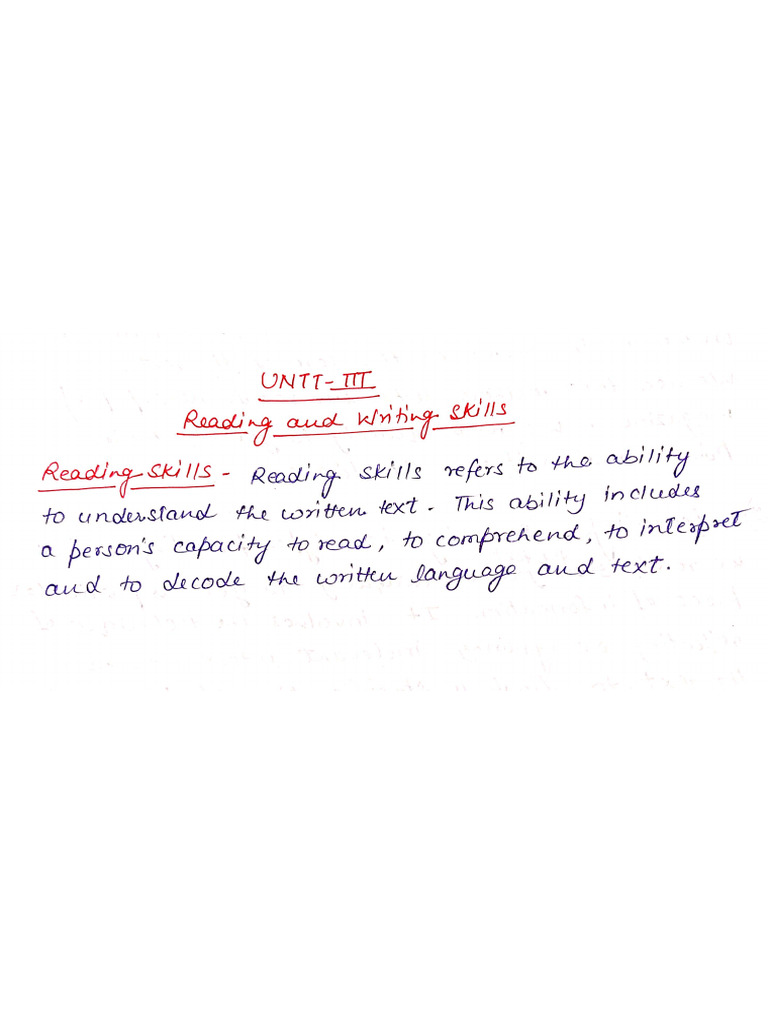 UNIT-III
Reading and Writing Skills
Reading Skills - Reading skills refers to the ability
to understand the written text. This ability includes
a person's capacity to read, to comprehend, to interpret
and to decode the written language and text.